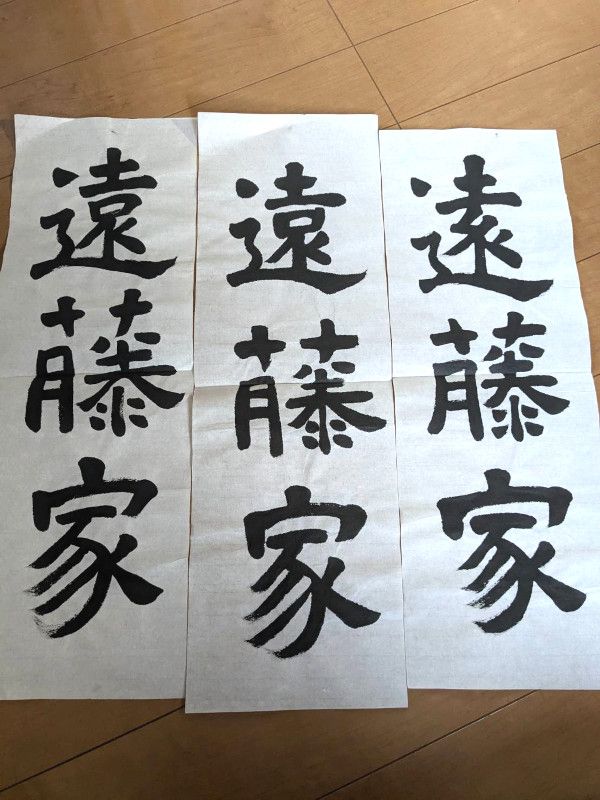 遠藤家
遠藤家
遠藤家